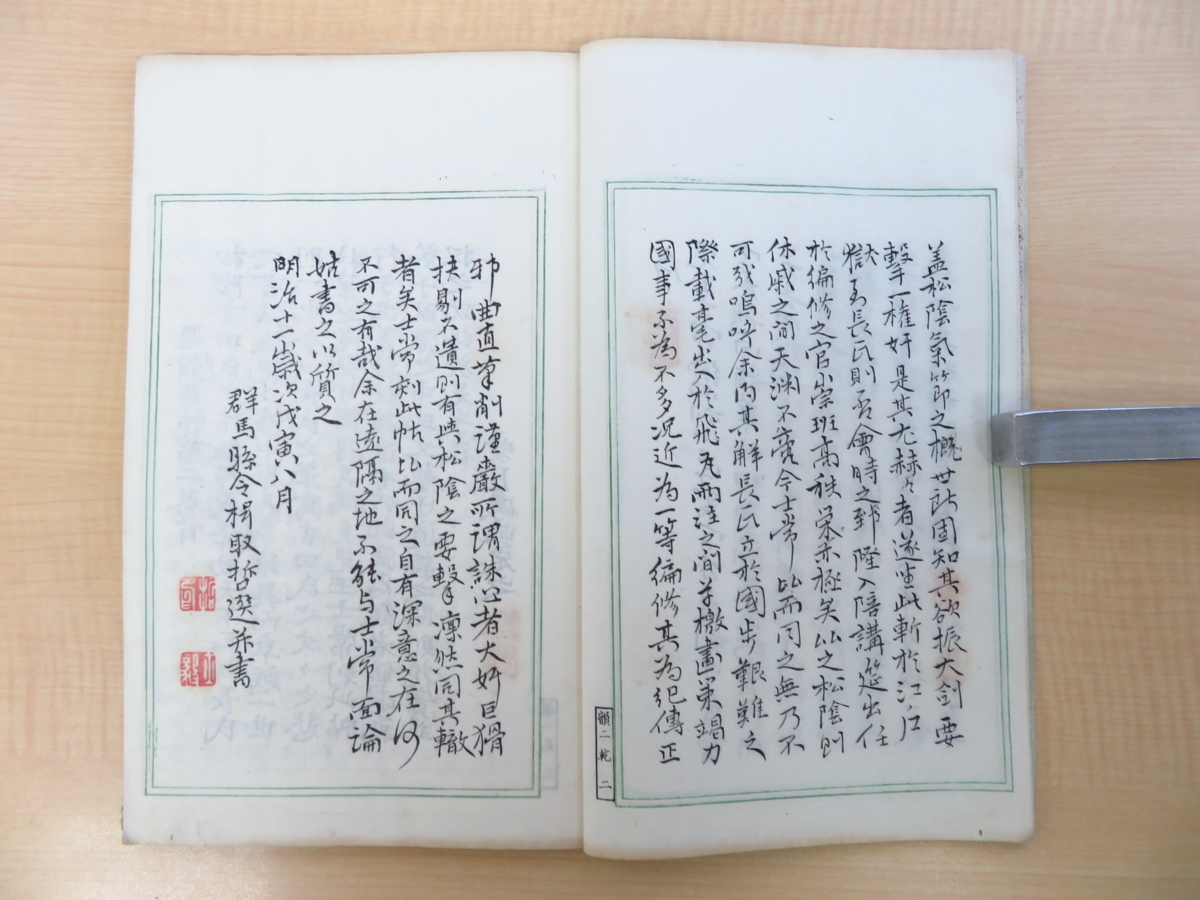 蓋松陰氣節之概世所固知其欲振大劍要
擊一權奸是其尤赫々者遂坐此斬於江戶
獄至長氏則吾會時之郅隆入陪講筵出任
於編修之官崇班高秩榮亦極矣以之松陰則
休戚之間天淵不啻今士常比而同之無乃不
可哉嗚呼余乃其解長氏立於國步艱難之
際載毫出入於飛丸雨注之間草檄畫策竭力
國事不為不多況近為一等編修其為紀傳正
邪曲直筆削謹嚴所謂誅心者大奸巨猾
抉剔不遺則有與松陰之要擊凜然同其轍
者矣士常刻此帖比而同之自有深意之在何
不可之有哉余在遠隔之地不能与士常面論
姑書之以質之
明治十一歲次戊寅八月
群馬縣令楫取哲選并書
韻二 乾 二